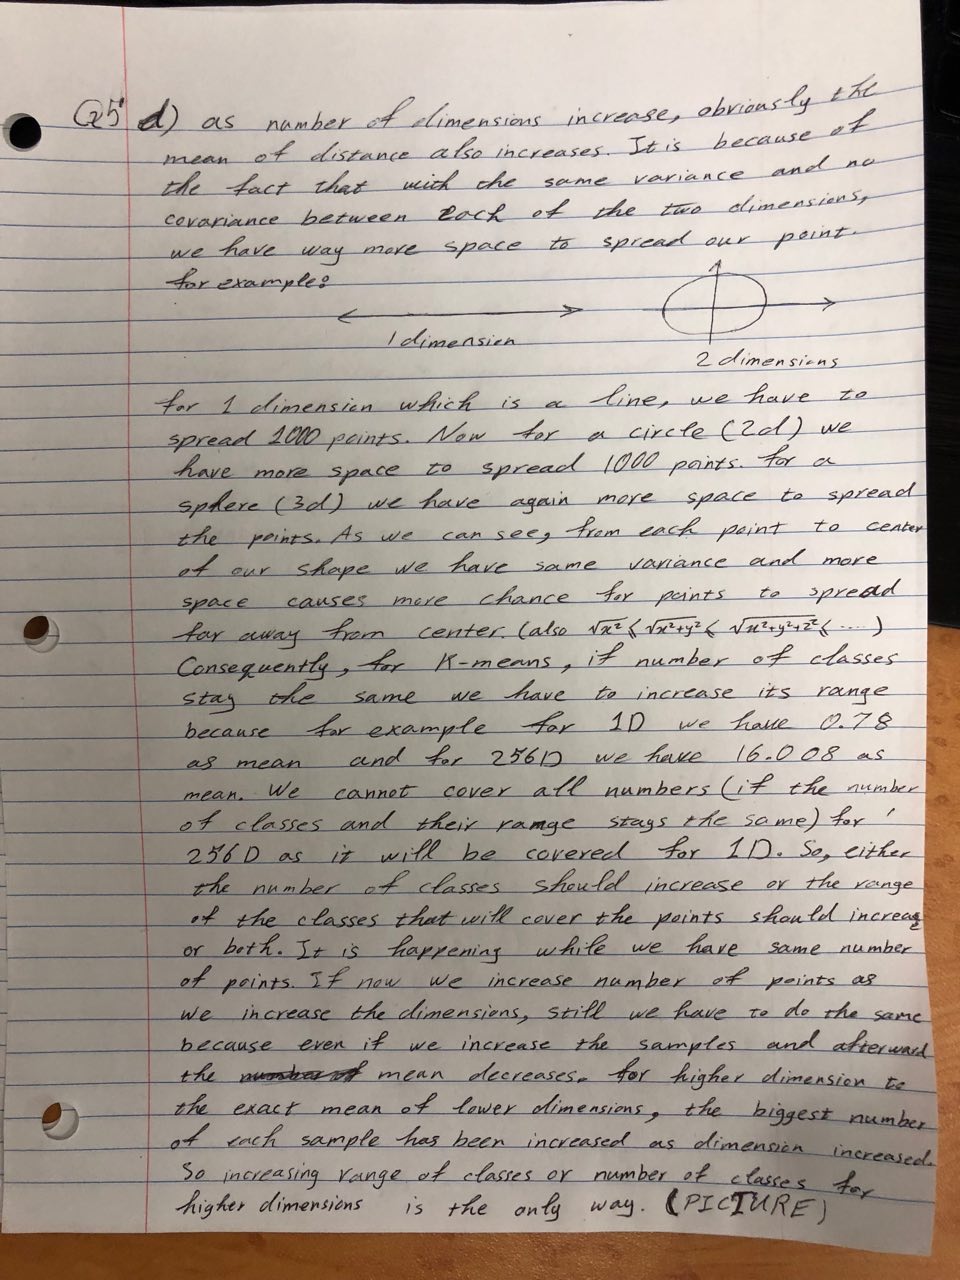 Q5 d) as number of dimensions increase, obviously the
mean of distance also increases. It is because of
the fact that with the same variance and no
covariance between each of the two dimensions,
we have way more space to spread our point.
for example:
1 dimension
2 dimensions
for 1 dimension which is a line, we have to
spread 1000 points. Now for a circle (2d) we
have more space to spread 1000 points. for a
sphere (3d) we have again more space to spread
the points. As we can see, from each point to center
of our shape we have same variance and more
space causes more chance for points to spread
far away from center. (also √x² < √x²+y² < √x²+y²+z² < ....)
Consequently, for K-means, if number of classes
stay the same we have to increase its range
because for example for 1D we have 0.78
as mean and for 256D we have 16.008 as
mean. We cannot cover all numbers (if the number
of classes and their range stays the same) for
256D as it will be covered for 1D. So, either
the number of classes should increase or the range
of the classes that will cover the points should increase
or both. It is happening while we have same number
of points. If now we increase number of points as
we increase the dimensions, still we have to do the same
because even if we increase the samples and afterward
the mean decreases. for higher dimension to
the exact mean of lower dimensions, the biggest number
of each sample has been increased as dimension increased.
So increasing range of classes or number of classes for
higher dimensions is the only way. (PICTURE)